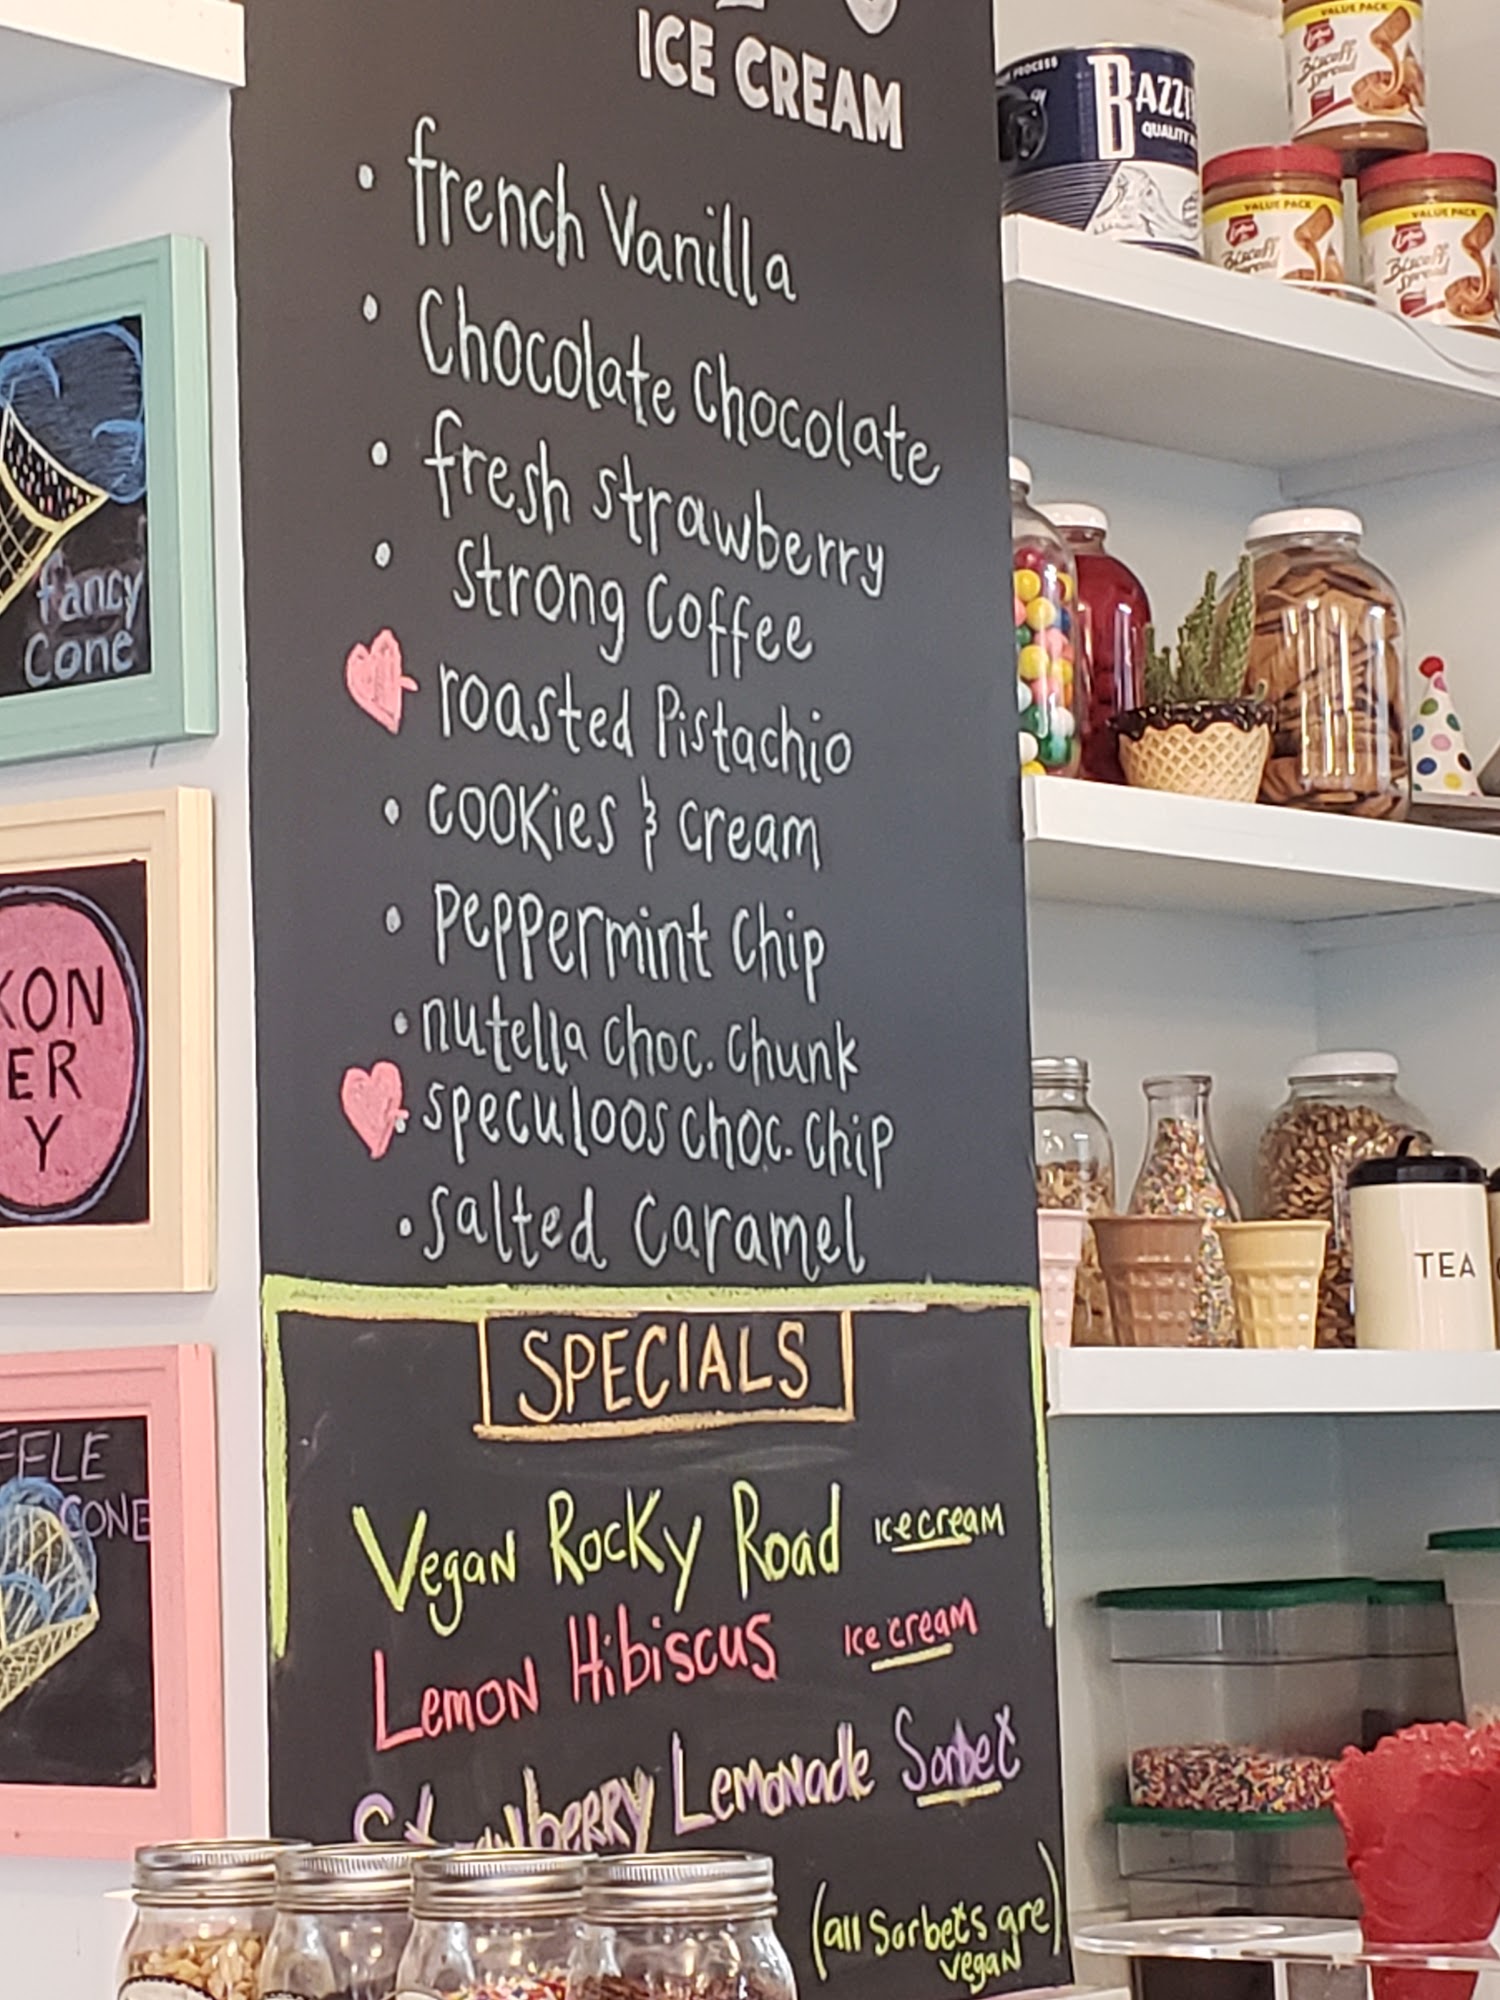 ICE CREAM
• french Vanilla
• Chocolate Chocolate
• fresh strawberry
• strong Coffee
roasted Pistachio
• cookies & cream
• peppermint chip
• nutella choc. chunk
• speculoos choc. chip
• salted caramel
SPECIALS
Vegan Rocky Road ice cream
Lemon Hibiscus ice cream
Strawberry Lemonade Sorbet
(all Sorbets are)
vegan
fancy
Cone
KON
ER
Y
FFLE
CONE
PROCESS
BAZZI
QUALITY
VALUE PACK
Lotus
Biscoff
Spread
VALUE PACK
Lotus
Biscoff
Spread
VALUE PACK
Lotus
Biscoff
Spread
TEA